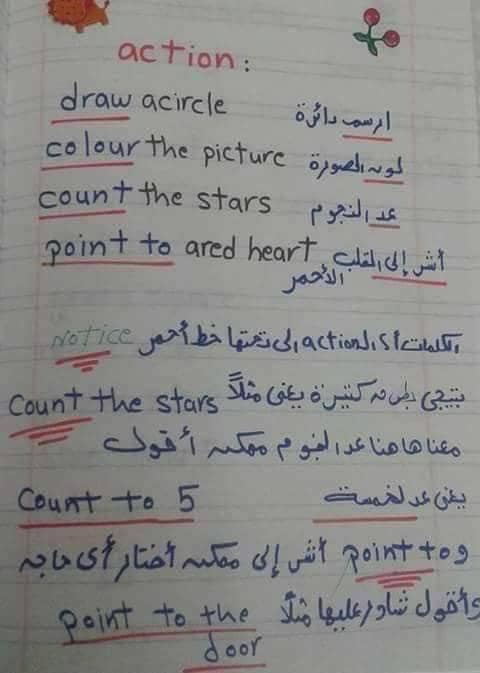 action :
draw acircle ارسم دائرة
colour the picture لون الصورة
count the stars عد النجوم
point to ared heart أشر إلى القلب
الأحمر
Notice الكلمات أى الـ action إلى تحتها خط أحمر
بتيجى بطرق كتيرة يعنى مثلاً count the stars
معناها هنا عد النجوم ممكن أقول
count to 5 يعنى عد لخمسة
و point to أشر إلى ممكن أختار أى حاجه
وأقول شاور عليها مثلاً point to the
door